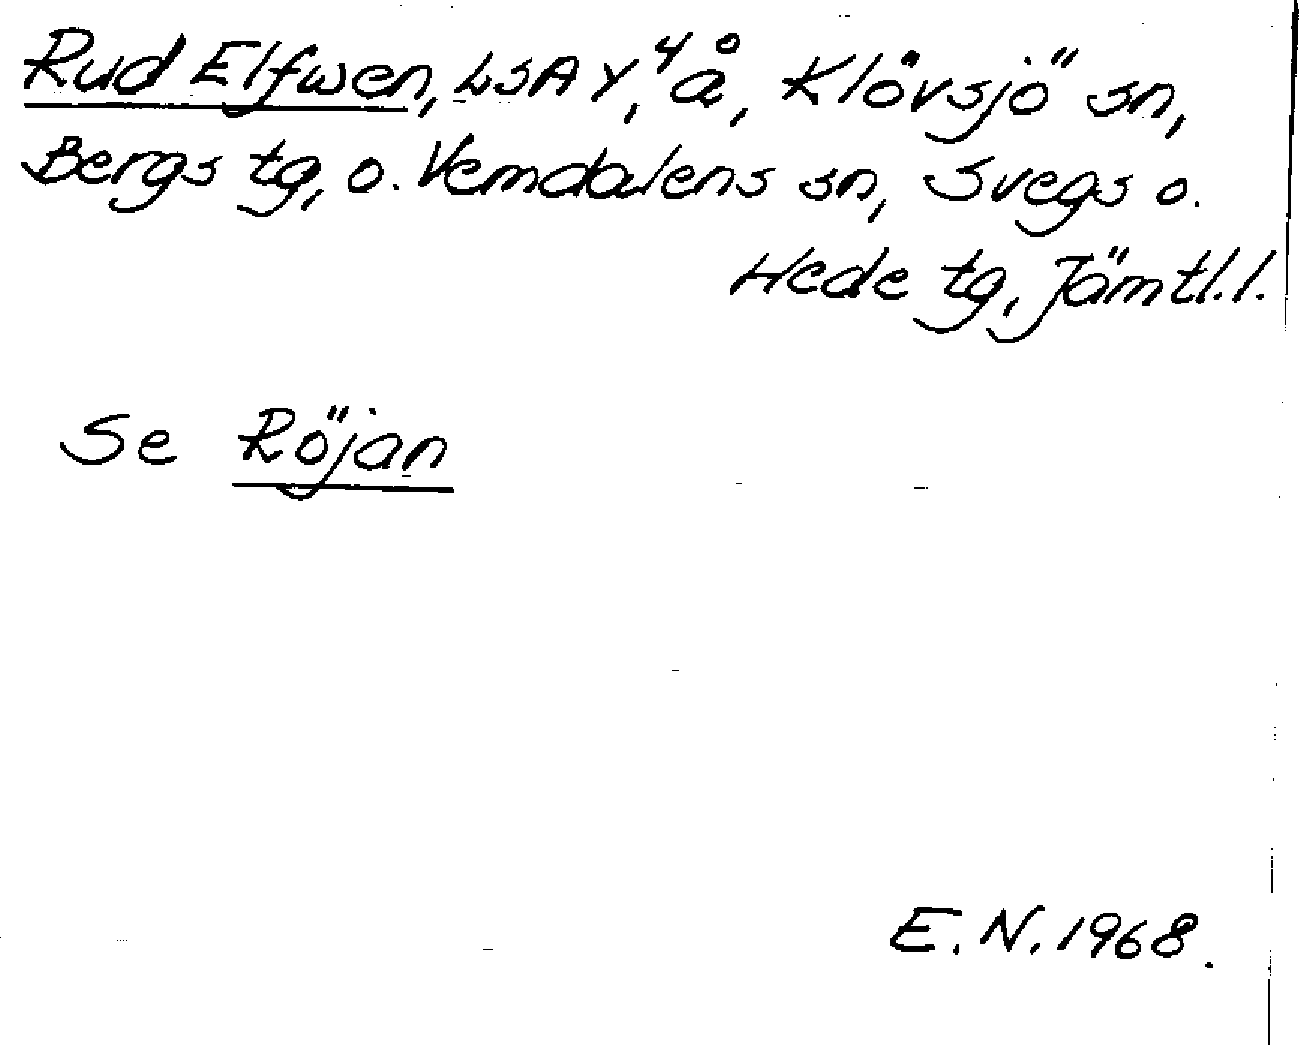 Rud Elfwen, LSA Y, 4 å, Klövsjö sn,
Bergs tg, o. Vemdalens sn, Svegs o.
Hede tg, Jämtl.l.
Se Röjan
E.N. 1968.